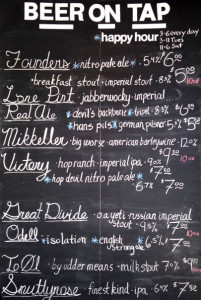 BEER ON TAP
*happy hour 3-6 every day
3-11 Tues
11-6 Sat
Founders *nitro pale ale 5.4%
breakfast stout - imperial stout 8.3% $5.00
Lone Pint - jabberwocky - imperial
Real Ale *devil's backbone tripel 8.3%
*hans pils *german pilsner 5.5% $5.00
Mikkeller - big worse - american barleywine 12.0%
Victory - hop ranch - imperial ipa - 9.0% $7.00
*hop devil nitro pale ale *
6.7% $7.00
Great Divide - oak yeti russian imperial
stout - 9.5% $7.00
Odell *isolation *english 6.5% $7.50
To Øl - by udder means - milk stout 7.0% $9.00
Smuttynose - finest kind - ipa 6.9%